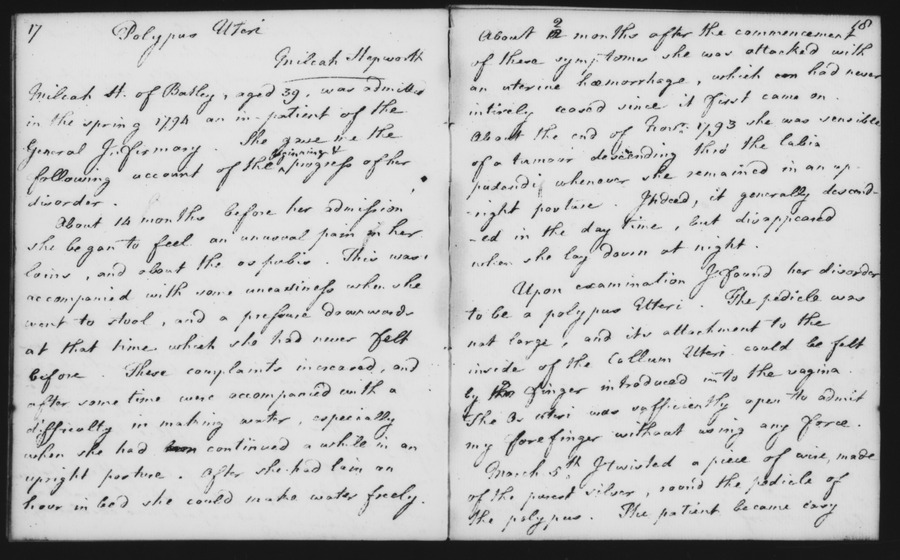 17
Polypus Uteri
Milcah Hepworth
Milcah H. of Batley, aged 39, was admitted
in the spring 1794 an in-patient of the
General Infirmary. She gave me the
following account of the beginning & progress of her
disorder.
About 14 months before her admission
she began to feel an unusual pain in her
loins, and about the os pubis. This was
accompanied with some uneasiness when she
went to stool, and a pressure downwards
at that time which she had never felt
before. These complaints increased, and
after some time were accompanied with a
difficulty in making water, especially
when she had continued a while in an
upright posture. After she had lain an
hour in bed she could make water freely.
18
About 2 months after the commencement
of these symptoms she was attacked with
an uterine hæmorrhage, which had never
intirely ceased since it first came on.
About the end of Novr. 1793 she was sensible
of a tumour descending thro' the labia
pudendi whenever she remained in an up-
-right posture. Indeed, it generally descend-
-ed in the day time, but disappeared
when she lay down at night.
Upon examination I found her disorder
to be a polypus Uteri. The pedicle was
not large, and its attachment to the
inside of the Collum Uteri could be felt
by the finger introduced into the vagina.
The Os uteri was sufficiently open to admit
my forefinger without using any force.
March 5th I twisted a piece of wire, made
of the purest silver, round the pedicle of
the polypus. The patient became easy